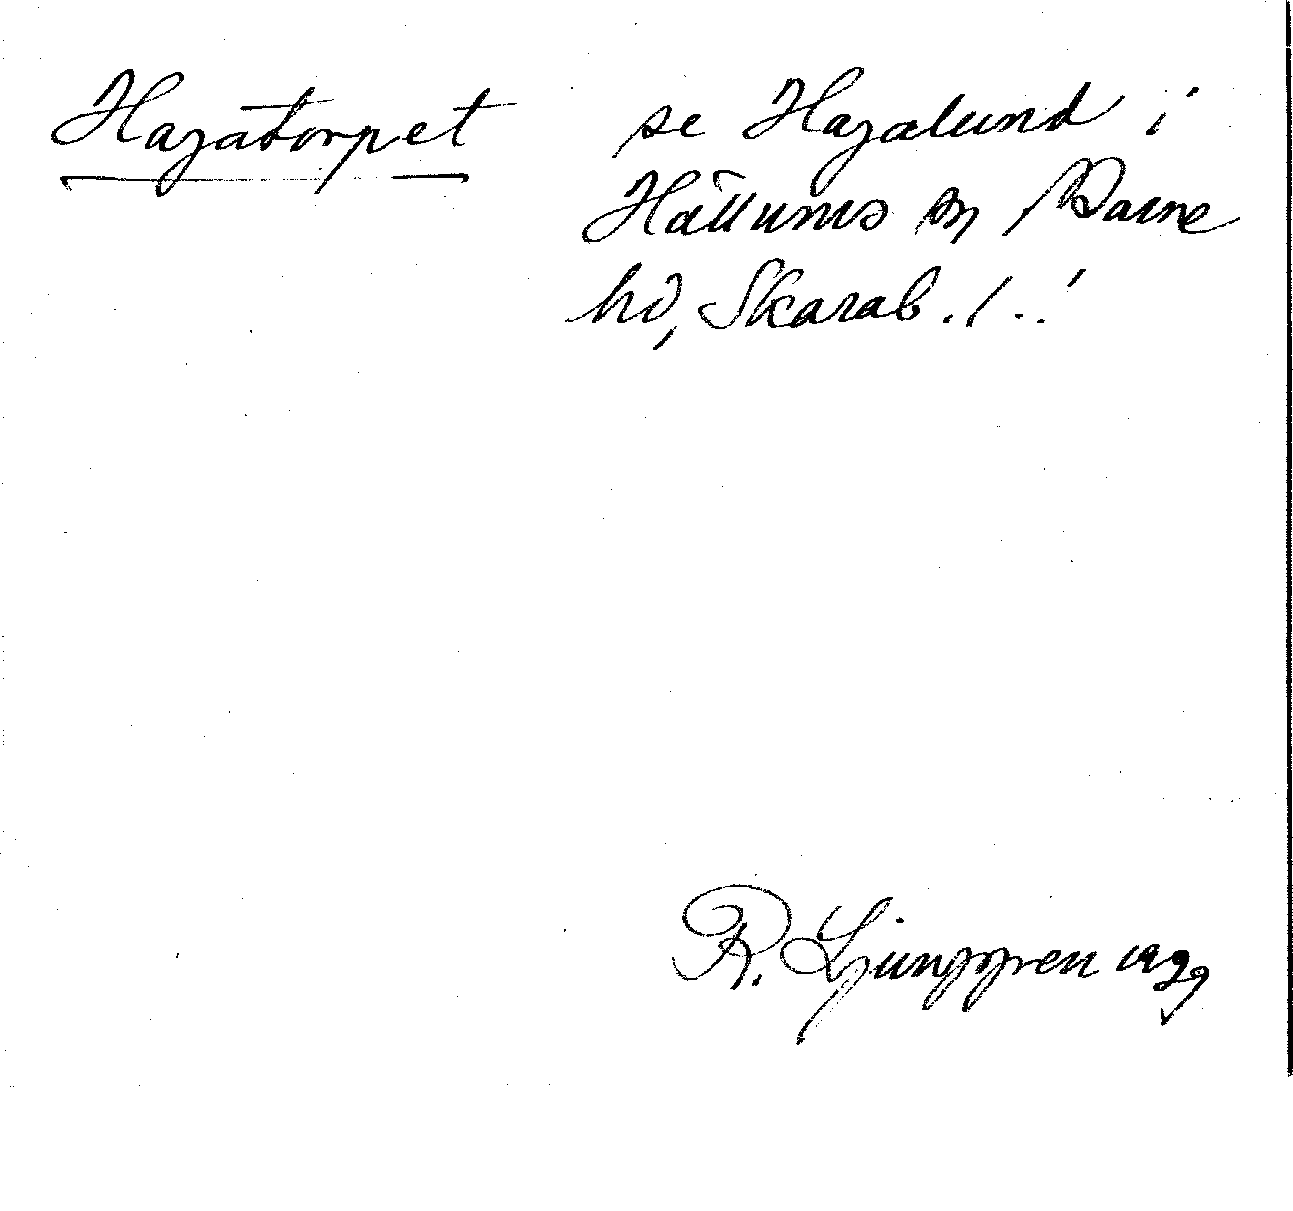 Hagatorpet se Hagalund i
Hällums sn Barne
hd, Skarab. l..!
R. Ljunggren 1929